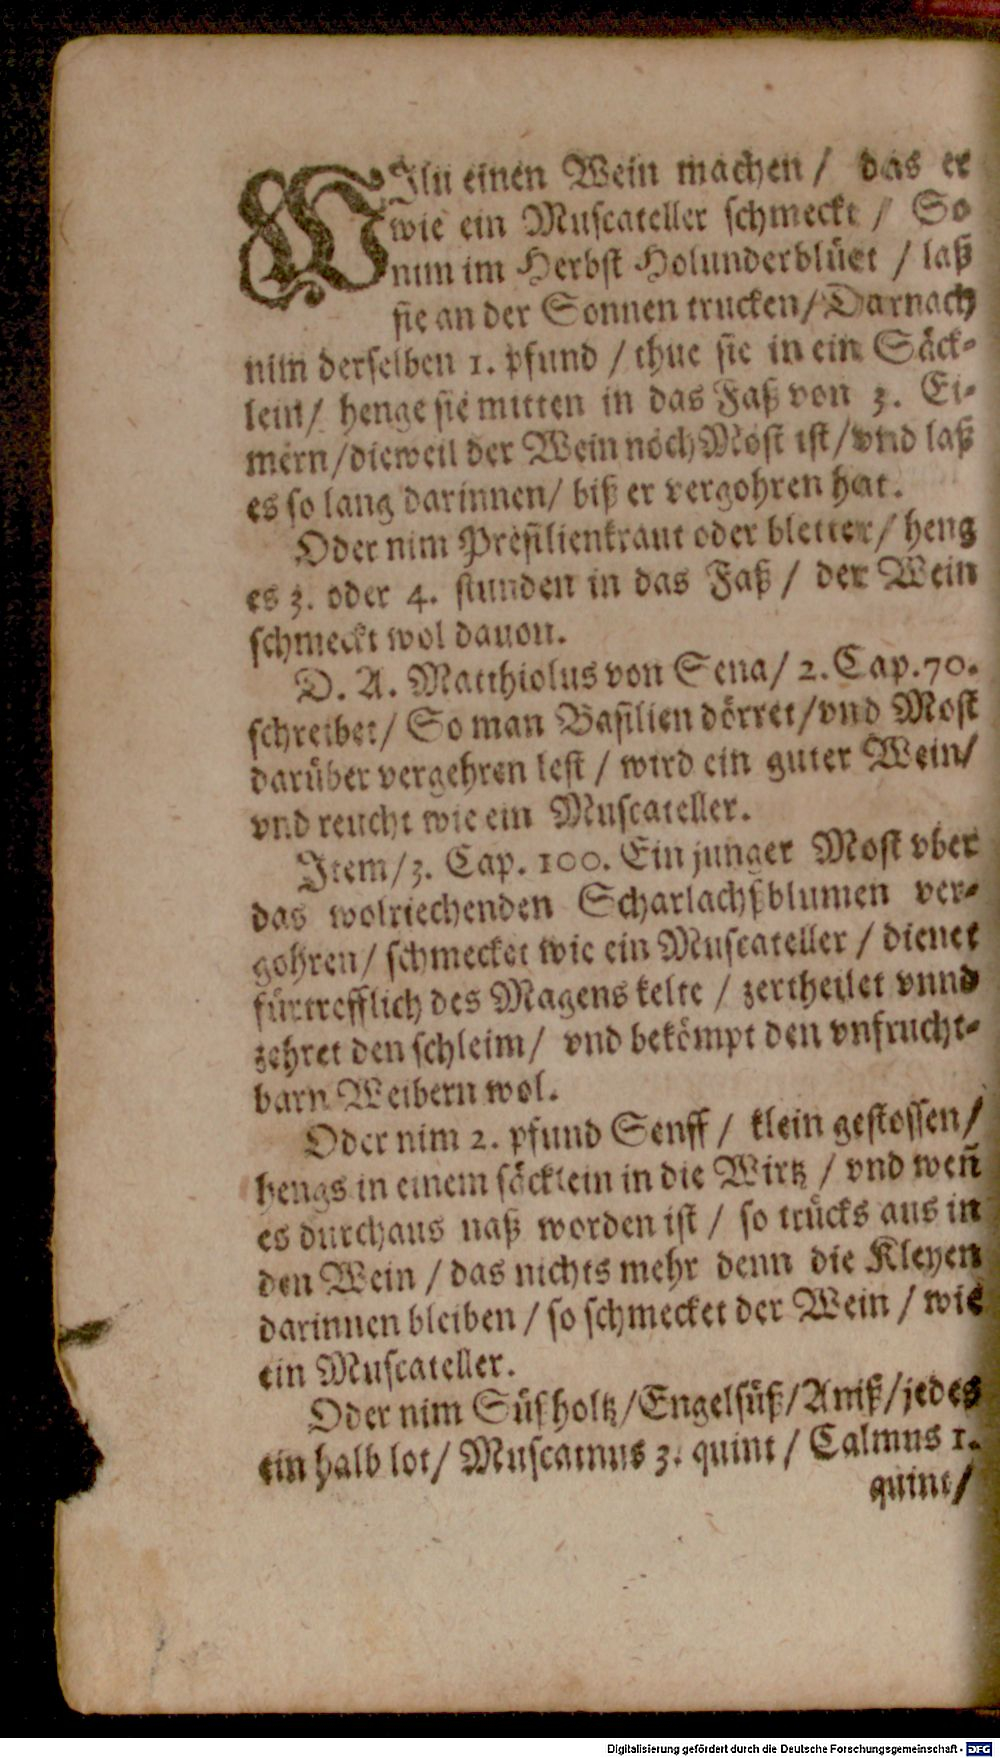 WIltu einen Wein machen / das er
wie ein Muscateller schmeckt / So
nim im Herbst Holunderblüet / laß
sie an der Sonnen trucken / Darnach
nim derselben 1. pfund / thue sie in ein Säck-
lein / henge sie mitten in das Faß von 3. Ei-
mern / dieweil der Wein noch Most ist / vnd laß
es so lang darinnen / biß er vergohren hat.
Oder nim Presilienkraut oder bletter / heng
es 3. oder 4. stunden in das Faß / der Wein
schmeckt wol dauon.
D. A. Matthiolus von Sena / 2. Cap. 70.
schreibet / So man Basilien dörret / vnd Most
darüber vergehren lest / wird ein guter Wein /
vnd reucht wie ein Muscateller.
Item / 3. Cap. 100. Ein junger Most vber
das wolriechenden Scharlachßblumen ver-
gohren / schmecket wie ein Muscateller / dienet
fürtrefflich des Magens kelte / zertheilet vnnd
zehret den schleim / vnd bekömpt den vnfrucht-
barn Weibern wol.
Oder nim 2. pfund Senff / klein gestossen /
hengs in einem säcklein in die Wirtz / vnd weñ
es durchaus naß worden ist / so trücks aus in
den Wein / das nichts mehr denn die Kleyen
darinnen bleiben / so schmecket der Wein / wie
ein Muscateller.
Oder nim Süßholtz / Engelsüß / Aniß / jedes
ein halb lot / Muscatnus 3. quint / Calmus 1.
quint /
Digitalisierung gefördert durch die Deutsche Forschungsgemeinschaft - DFG